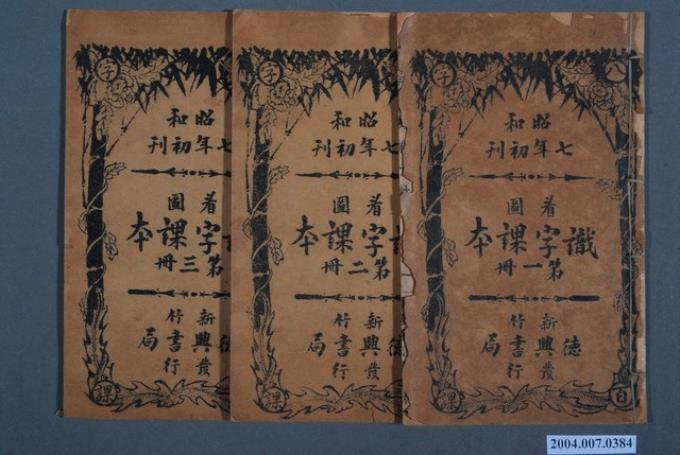 八
百
字
課
昭和
七年初刊
着圖
識字課本
第一冊
新竹
德興書局
發行
字
課
昭和
七年初刊
着圖
字課本
第二冊
新竹
德興書局
發行
字
課
昭和
七年初刊
着圖
字課本
第三冊
新竹
德興書局
發行
2004.007.0384